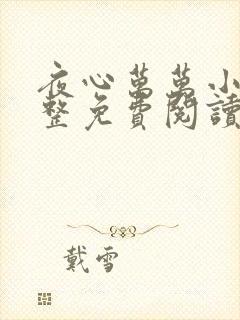 夜心萬萬小
整免費閱讀
戴雪